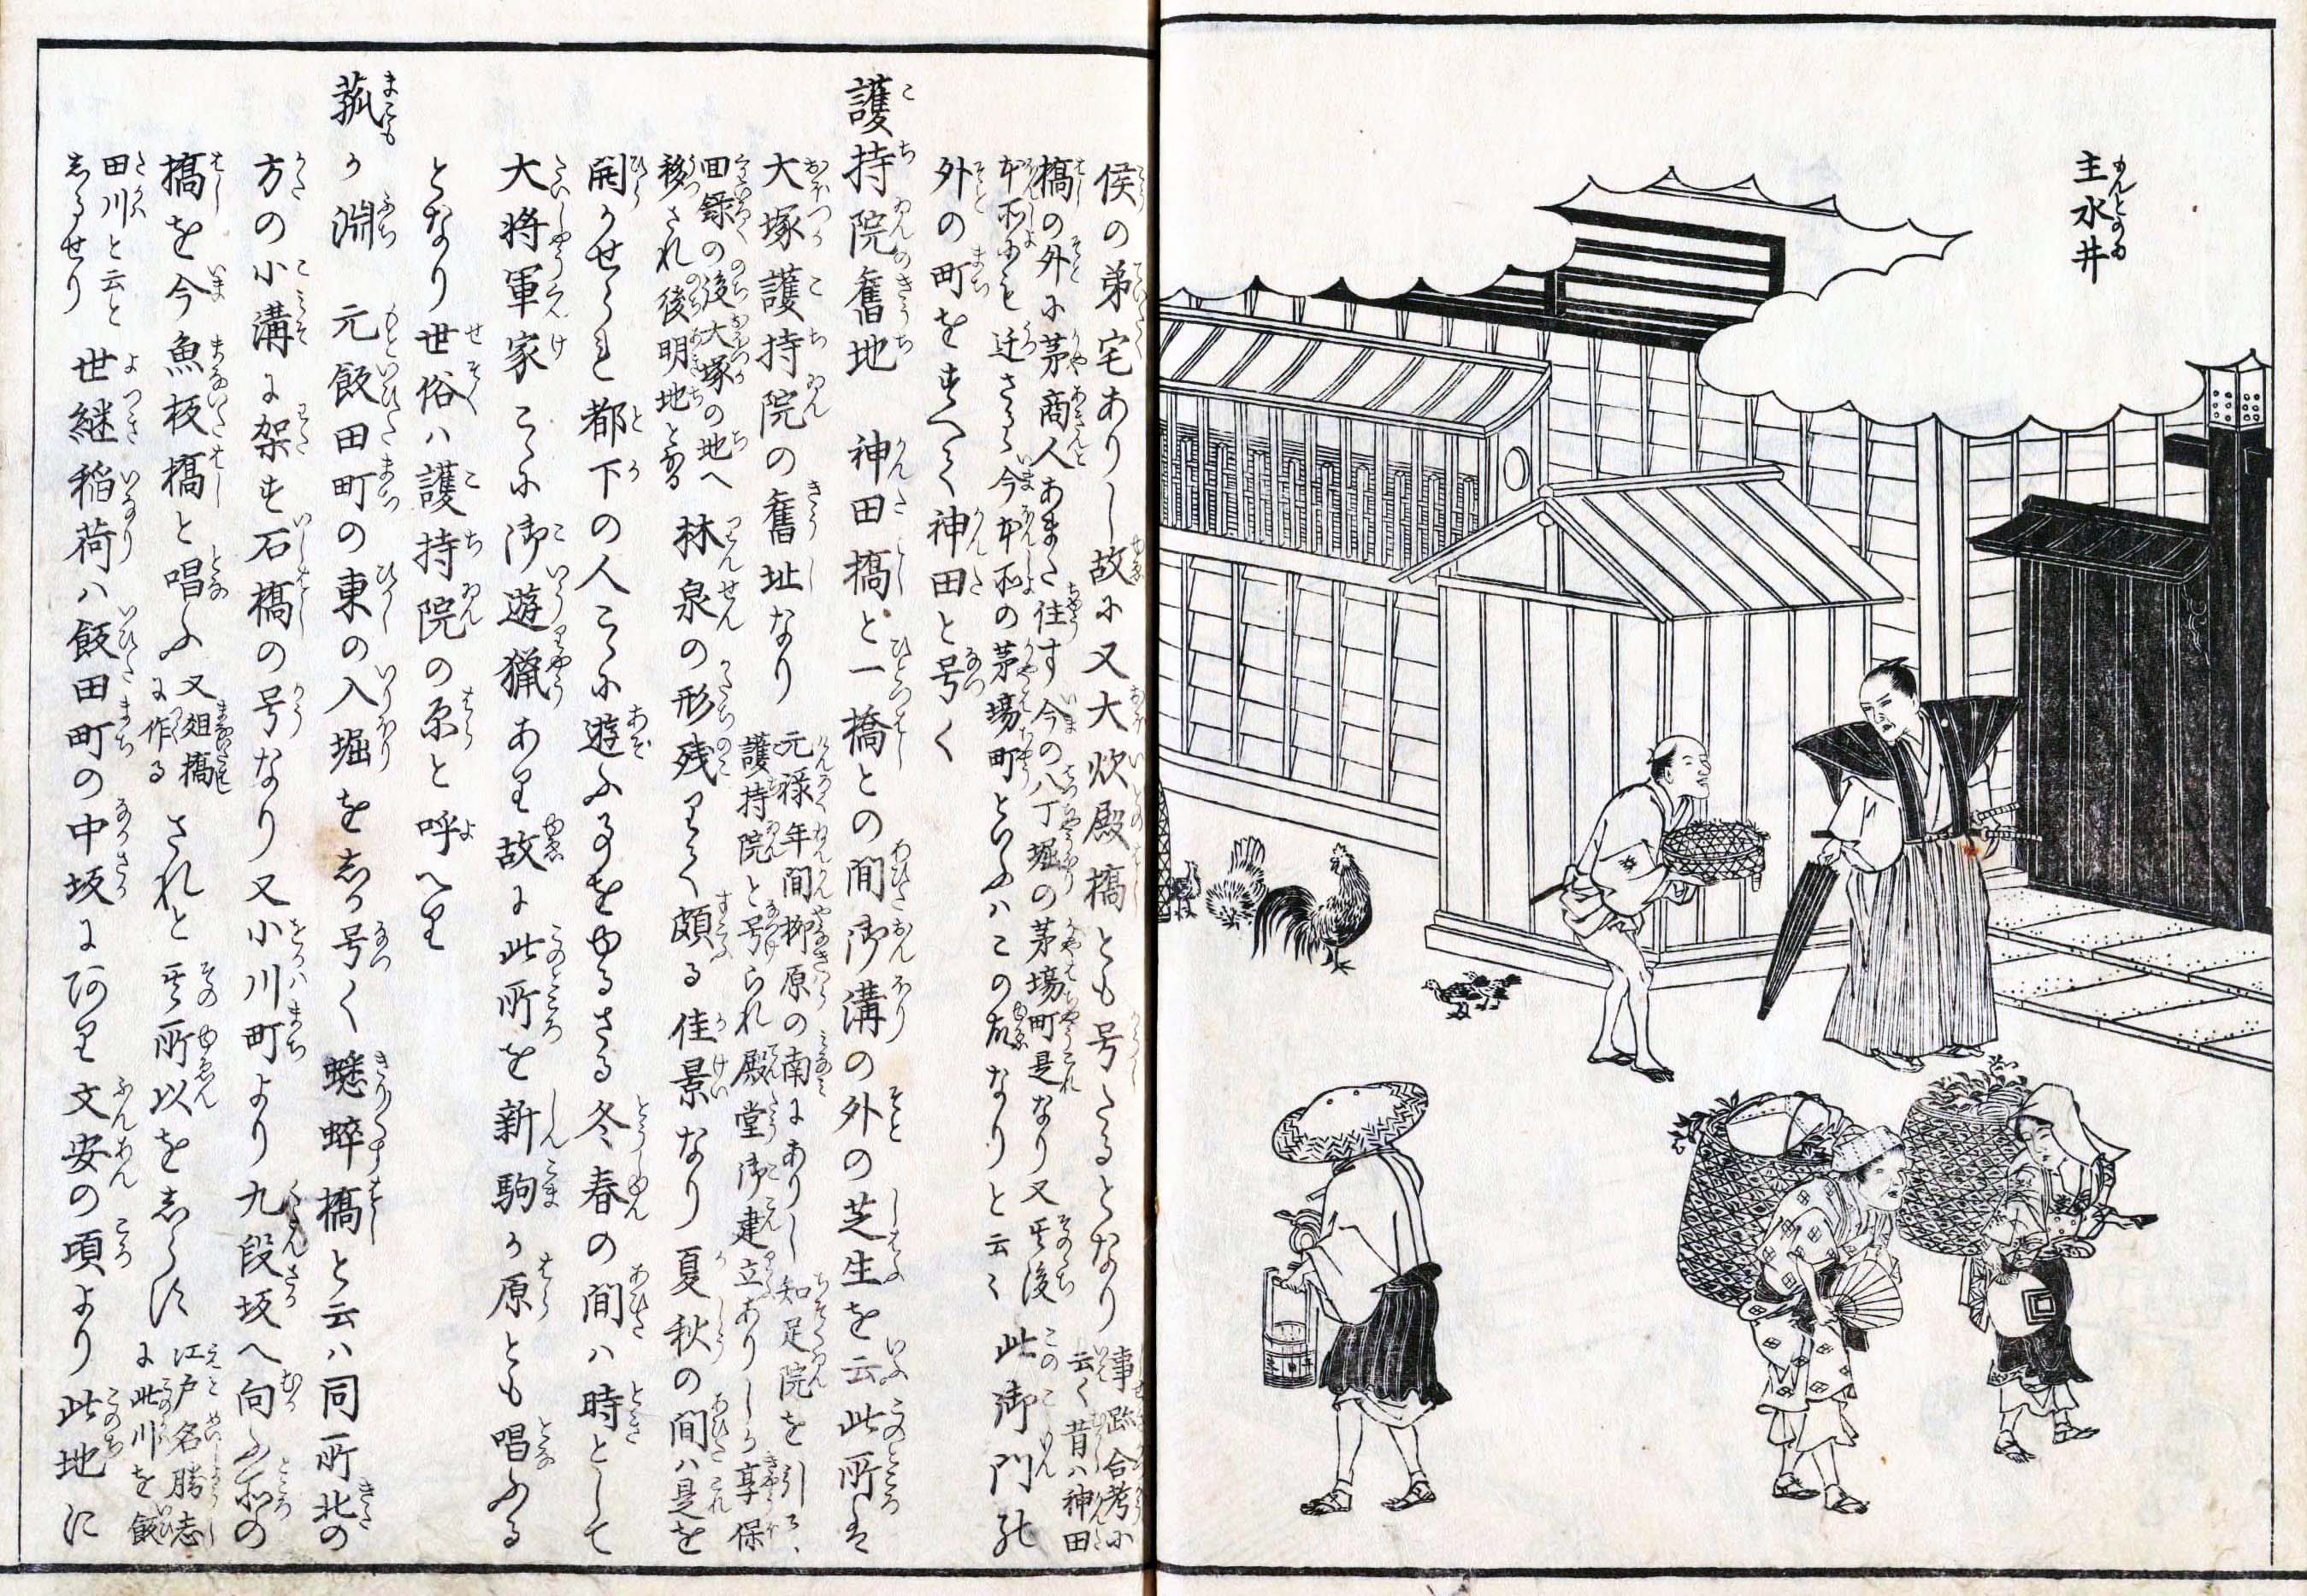 主水井
侯の弟宅ありし故に又大炊殿橋とも号たるとなり事跡合考に云く昔ハ神田
橋の外に茅商人あまた住す今の八丁堀の茅場町是なり又其後
本所にも迁さる今本所の茅場町といふハこの故なりと云々此御門の
外の町をすへく神田と号く
護持院舊地 神田橋と一橋との間御溝の外の芝生を云此所は
大塚護持院の舊址なり元禄年間柳原の南にありし知足院を引て、護持院と号られ殿堂御建立ありしか享保
回録の後大塚の地へ移され後明地となる林泉の形残りて頗る佳景なり夏秋の間ハ是を
開かせられ都下の人こゝに遊ふ事をゆるさる冬春の間ハ時として
大将軍家こゝに御遊猟あり故に此所を新駒か原とも唱ふる
となり世俗ハ護持院の原と呼へり
菰か淵 元飯田町の東の入堀をしか号く蟋蟀橋と云ハ同所北の
方の小溝に架す石橋の号なり又小川町より九段坂へ向ふ所の
橋を今魚板橋と唱ふ又俎橋に作るされと其所以をしらす江戸名勝志に此川を飯
田川と云としるせり世継稲荷ハ飯田町の中坂にあり文安の頃より此地に